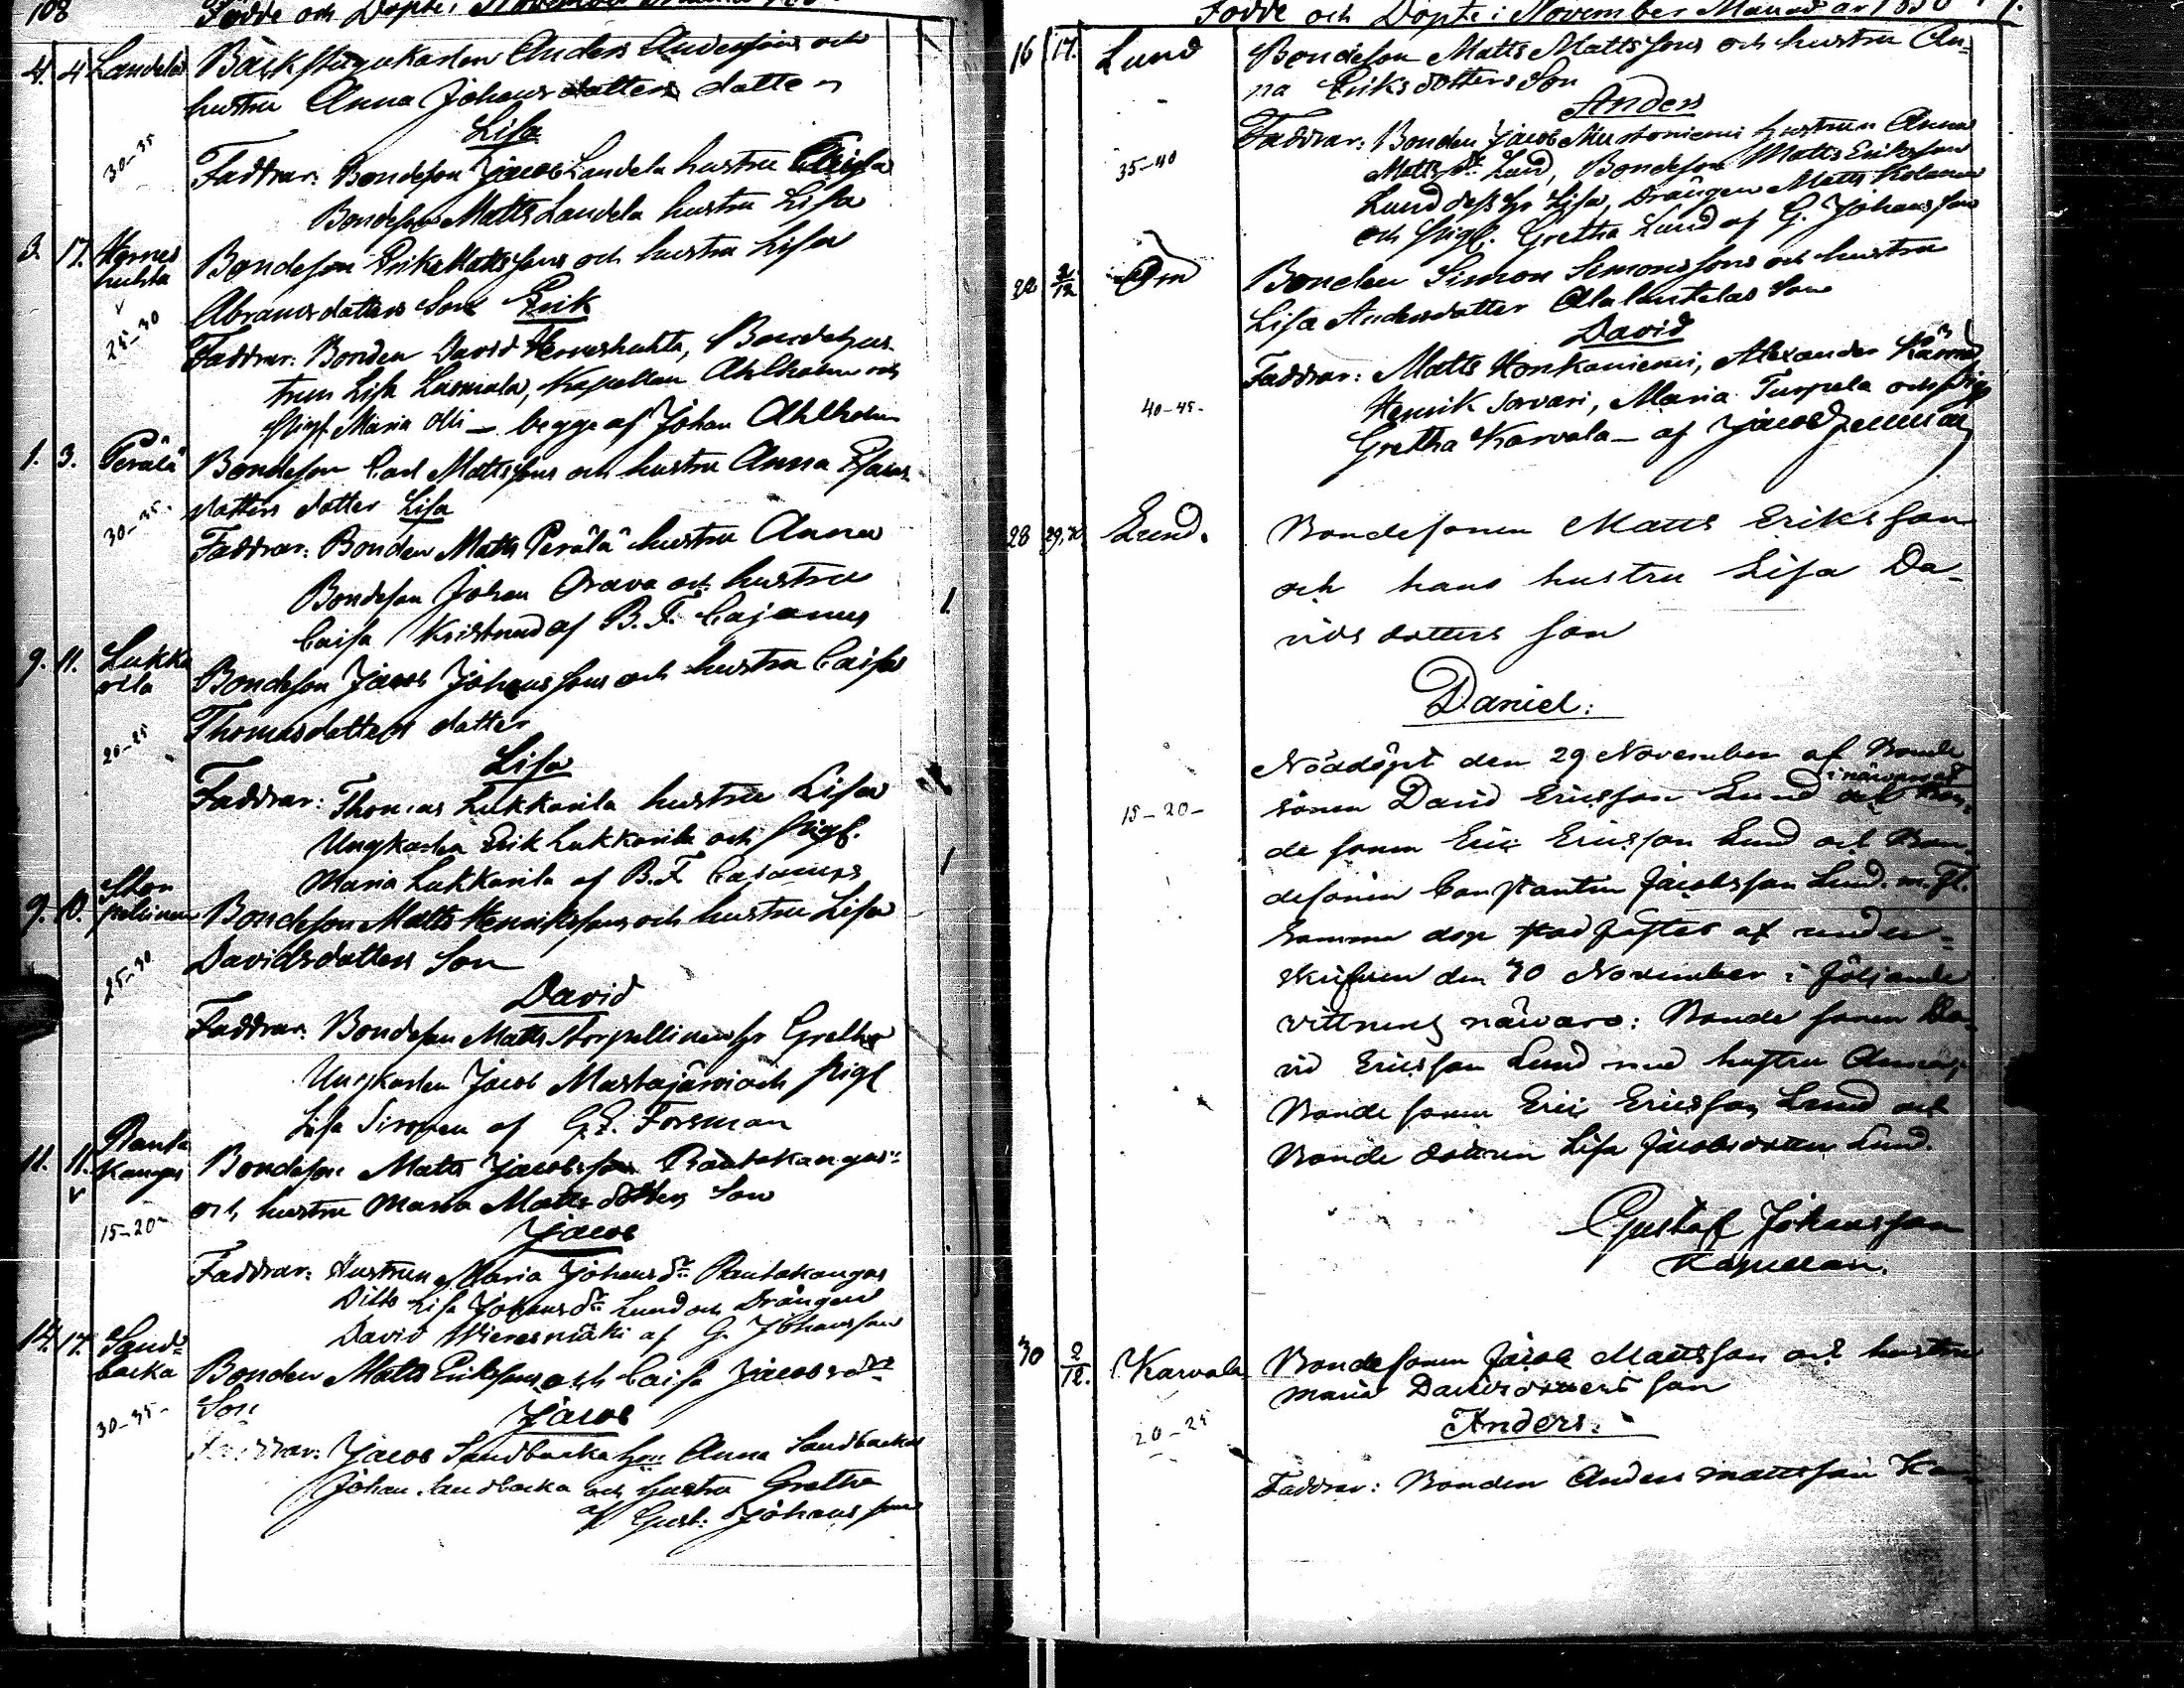 108
Födde och Döpte i November
4. 4 Landela Backstugukarlen Anders Anderssons och
hustru Anna Johansdotters dotter
Lisa
30-35
Faddrar: Bondeson Jacob Landela hustru Caisa
Bondeson Matts Landela hustru Lisa
3. 17. Hernes
huhta
Bondeson Erik Mattssons och hustru Lisa
Abramsdotters Son Erik
25-30
Faddrar: Bonden David Herneshuhta, Bondehus-
trun Lisa Lasmala, Kapellan Ahlholm och
Pigf. Maria Olli — begge af Johan Ahlholm
1. 3. Perälä Bondeson Carl Mattssons och hustru Anna Esaias-
dotters dotter Lisa
30-35.
Faddrar: Bonden Matts Perälä hustru Anna
Bondeson Johan Orava och hustru
Caisa Kristnad af B. F. Cajanus
1.
9. 11. Lukka
rila
Bondeson Jacob Johanssons och hustru Caisa
Thomasdotters dotter
20-25
Lisa
Faddrar: Thomas Lukkarila hustru Lisa
Ungkarlen Erik Lukkarila och Pigf.
Maria Lukkarila af B. F. Cajanus
1
9. 10. Stor
pellinen
Bondeson Matts Henrikssons och hustru Lisa
Davidsdotters Son
25-30
David
Faddrar: Bondeson Matts Storpellinen hr Gretha
Ungkarlen Jacob Mustajärvi och Pigf
Lisa Sironen af G. E. Forsman
11. 11. Ranta
kangas
Bondeson Matts Jacobsson Rantakangas
och hustru Maria Matts dotters Son
15-20
Jacob
Faddrar: Hustrun Maria Johansdr Rantakangas
Ditto Lisa Johansdr Lund och Drängen
David Wieresmäki af G. Johansson
14. 17. Sand-
backa
Bonden Matts Erikssons och Caisa Jacobsdrs
Son
30-35-
Jacob
Faddrar: Jacob Sandbacka hu Anna Sandbacka
Johan Sandbacka och hustru Gretha
af Gust. Johansson
Födde och Döpte i November Månad år 18
16 17. Lund Bondeson Matts Mattssons och hustru An-
na Eriksdotters Son
Anders
35-40
Faddrar: Bonden Jacob Mustaniemi hustrun Anna
Matts dr Lund, Bondeson Matts Eriksson
Lund dess hr Lisa, Drängen Matts Kolanen
och Pigf. Gretha Lund af G. Johansson
22 2/12 Bonden Simon Simonssons och hustru
Lisa Andersdotter Alaluntelas Son
David
40-45-
Faddrar: Matts Honkaniemi, Alexander
Henrik Sorvari, Maria Turpela och Pigf
Gretha Karvala — af Jacob
28 29,30 Lund. Bondesonen Matts Eriksson
och hans hustru Lisa Da-
vids dotters son
Daniel:
15-20-
Nöddöpt den 29 November af Bonde
sonen David Ericsson Lund i närvaro af Bon-
de sonen Eric Ericsson Lund och Bon-
desonen Constantin Jacobsson Lund. m. fl.
Samma dop stadfästes af under-
skrifven den 30 November i följande
vittnens närvaro: Bonde sonen Da-
vid Ericsson Lund med hustru
Bonde sonen Eric Ericsson Lund och
Bonde dottren Lisa Jacobsdotter Lund.
Gustaf Johansson
Kapellan.
30 2/12. Karvala Bondesonen Jacob Mattsson och hustru
Maria Davidsdotters son
20-25
Anders.
Faddrar: Bonden Anders Mattsson Ka-